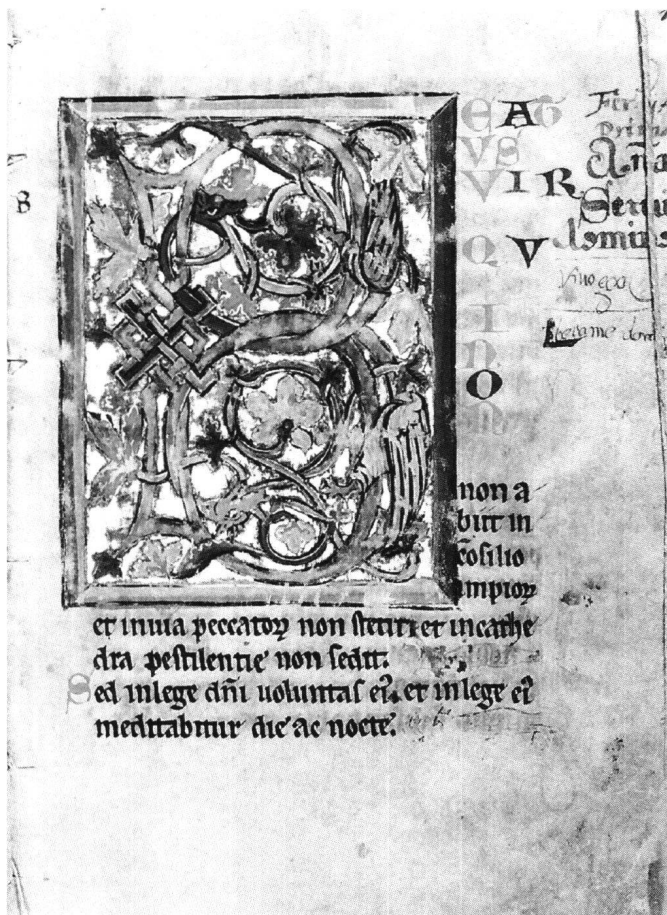 B
EAT
VS
VIR
QV
I
N
O
N
non a
biit in
cōsilio
impioꝝ
et in uia peccatoꝝ non stetit: et in cathe
dra pestilentie non sedit.
Sed in lege dn̄i uoluntas ei᷒. et in lege ei᷒
meditabitur die ac nocte.
Feria
Prima
An̄a
Serui
domino